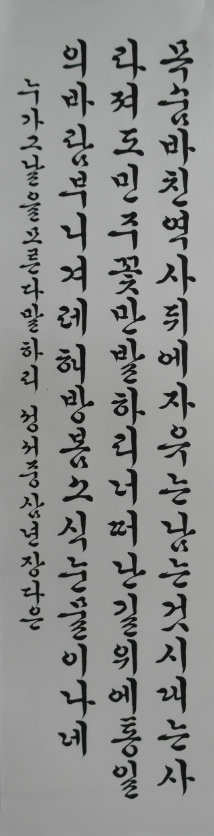 목숨바친역사뒤에자유는남는것시대는사
라져도민주꽃만발하리너떠난길위에통일
의바람부니겨레해방봄소식눈물이나네
누가그날을모른다말하리 성서중삼년장다은